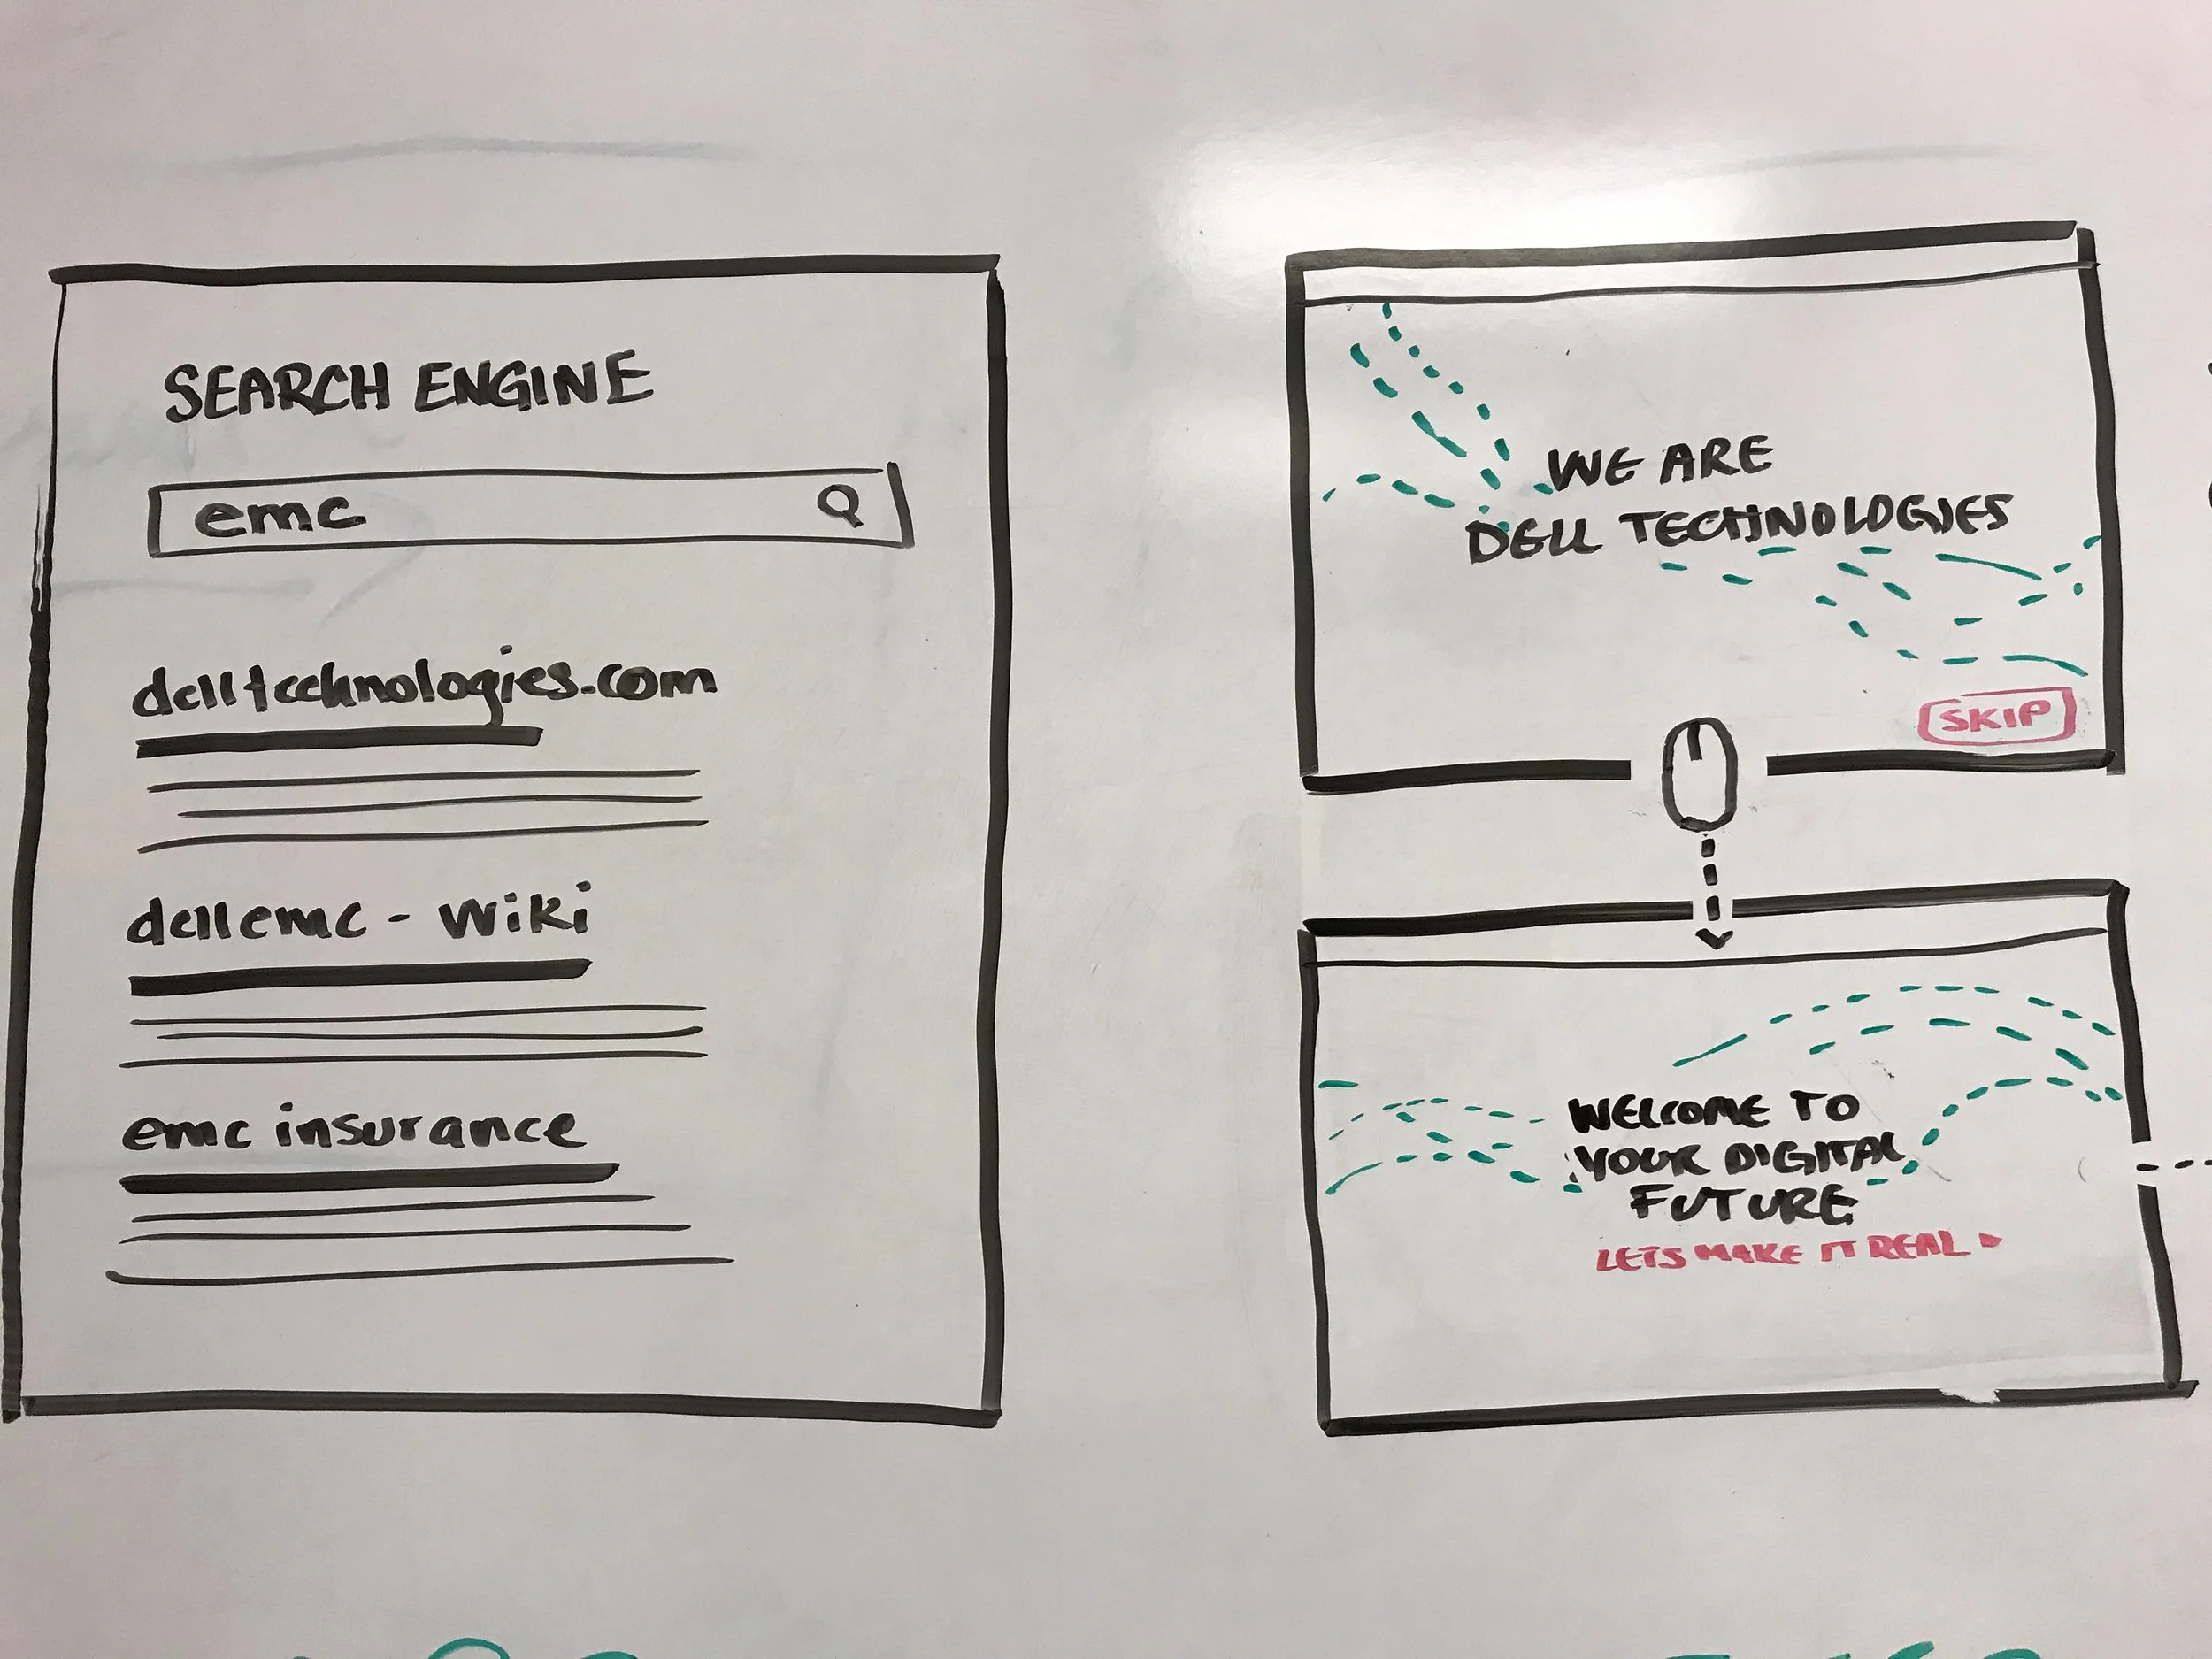 SEARCH ENGINE
emc
delltechnologies.com
dellemc - wiki
emc insurance
WE ARE
DELL TECHNOLOGIES
SKIP
WELCOME TO
YOUR DIGITAL
FUTURE
LETS MAKE IT REAL